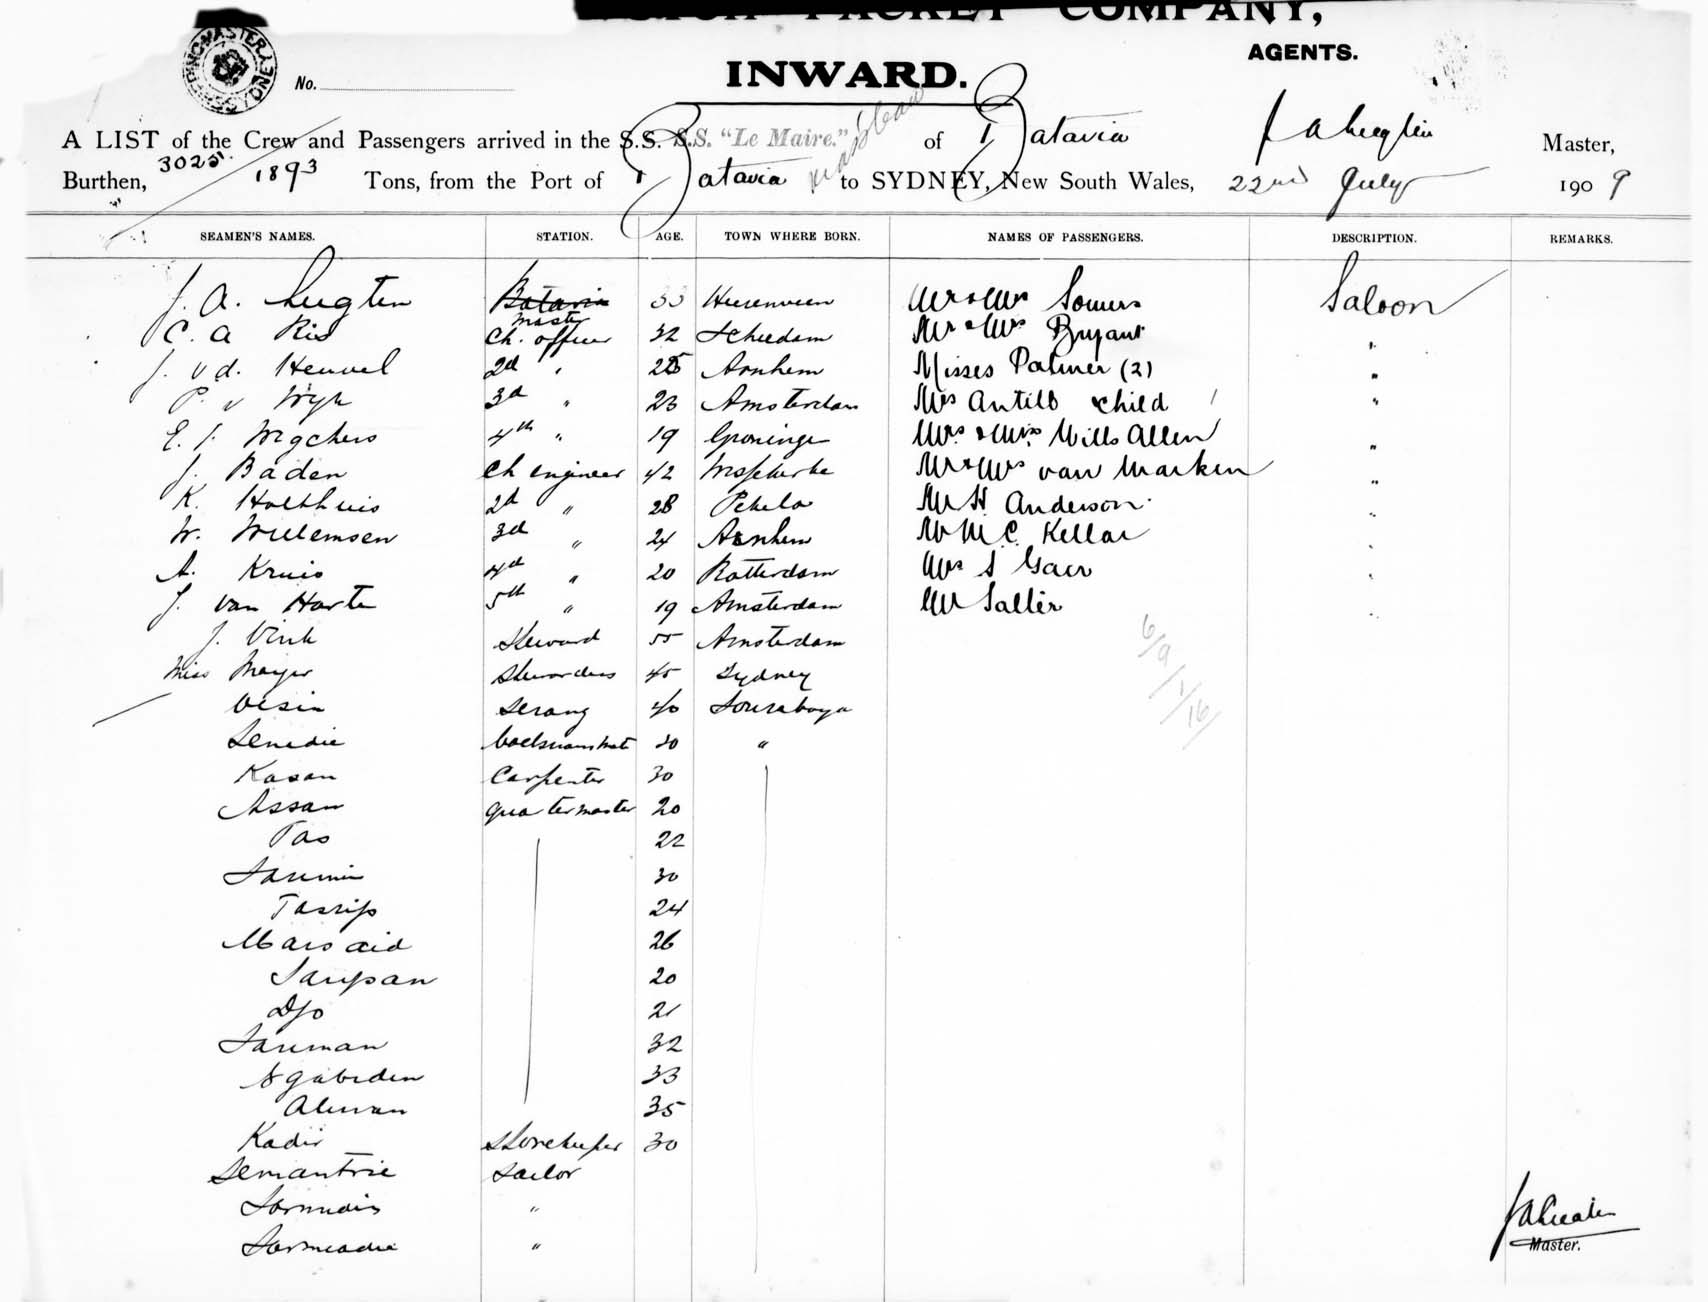 PACKET COMPANY,
AGENTS.
INWARD.
No.
A LIST of the Crew and Passengers arrived in the S.S. S.S. "Le Maire." of Batavia Master,
Burthen, 3025 / 1893 Tons, from the Port of Batavia to SYDNEY, New South Wales, 22nd July 1909
SEAMEN'S NAMES. STATION. AGE. TOWN WHERE BORN. NAMES OF PASSENGERS. DESCRIPTION. REMARKS.
J. A. Lugten Batavia master 33 Heerenveen Mr & Mrs Somers Saloon
C. A Ris Ch. officer 32 Schiedam Mr & Mrs Bryant "
J. v d. Heuvel 2d " 25 Arnhem Misses Palmer (2) "
P. v Wyk 3d " 23 Amsterdam Mrs Antill & child "
E. J. 4th " 19 Groningen Mrs & Miss Wills Allen "
J. Baden Ch engineer 42 Mr & Mrs van Marken "
K. Holthuis 2d " 28 Pekela Mr H. Anderson "
W. Willemsen 3d " 24 Arnhem Mr M. C. Kellar "
A. Kruis 4th " 20 Rotterdam Mrs S "
J. van Harte 5th " 19 Amsterdam Mr "
J. Vink Steward 55 Amsterdam
Miss Mayer Stewardess 45 Sydney
Visin Serang 40 Sourabaya
Senedie boatsmans mate 30 "
Kasan Carpenter 30
Assan quartermaster 20
Tas 22
Sarimin 30
Tassrip 24
Marsaid 26
Saripan 20
Djo 21
Sariman 32
Ngabidin 33
Aliwan 35
Kadir Storekeeper 30
Semantrie Sailor
"
"
6/9/1/16
Master.